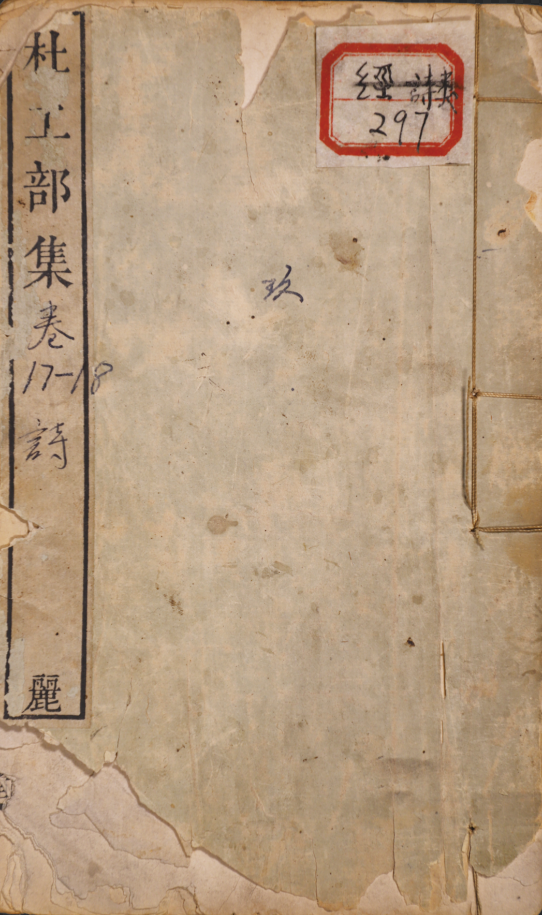 杜工部集卷
17-18
詩
麗
玖
經 詩類
297